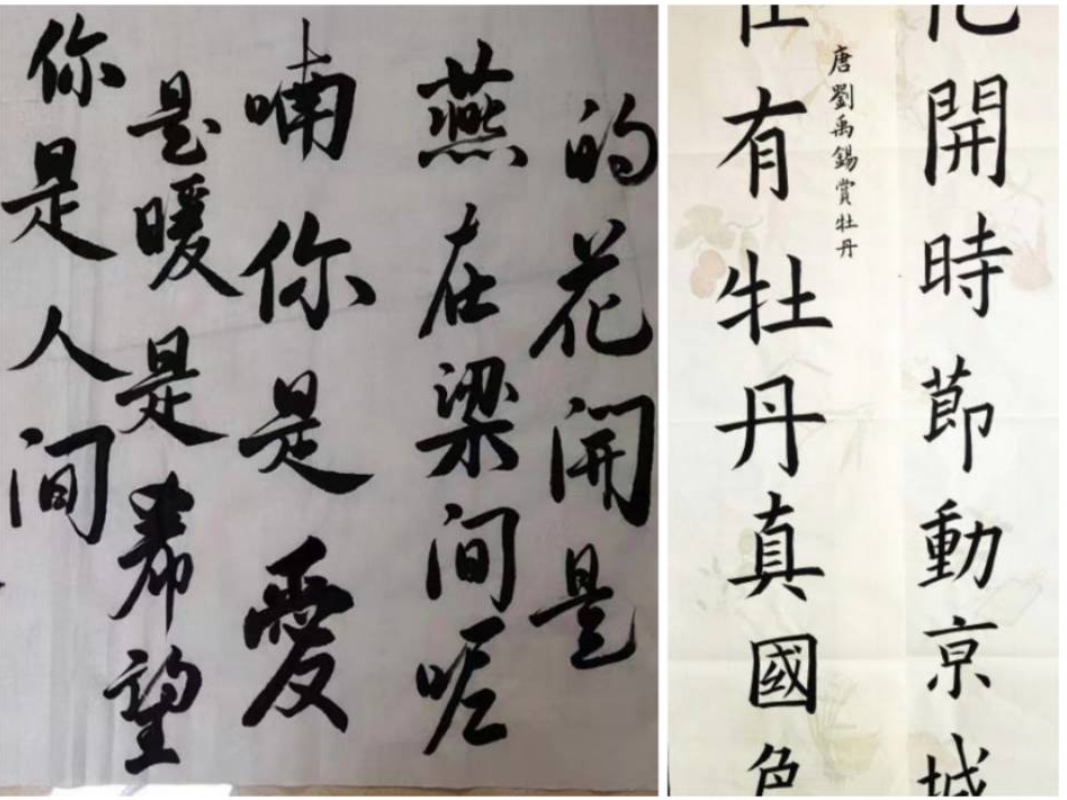 的花開是
燕在梁间呢
喃你是愛
是暖是希望
你是人间
開時節動京城
唐劉禹錫賞牡丹
有牡丹真國色